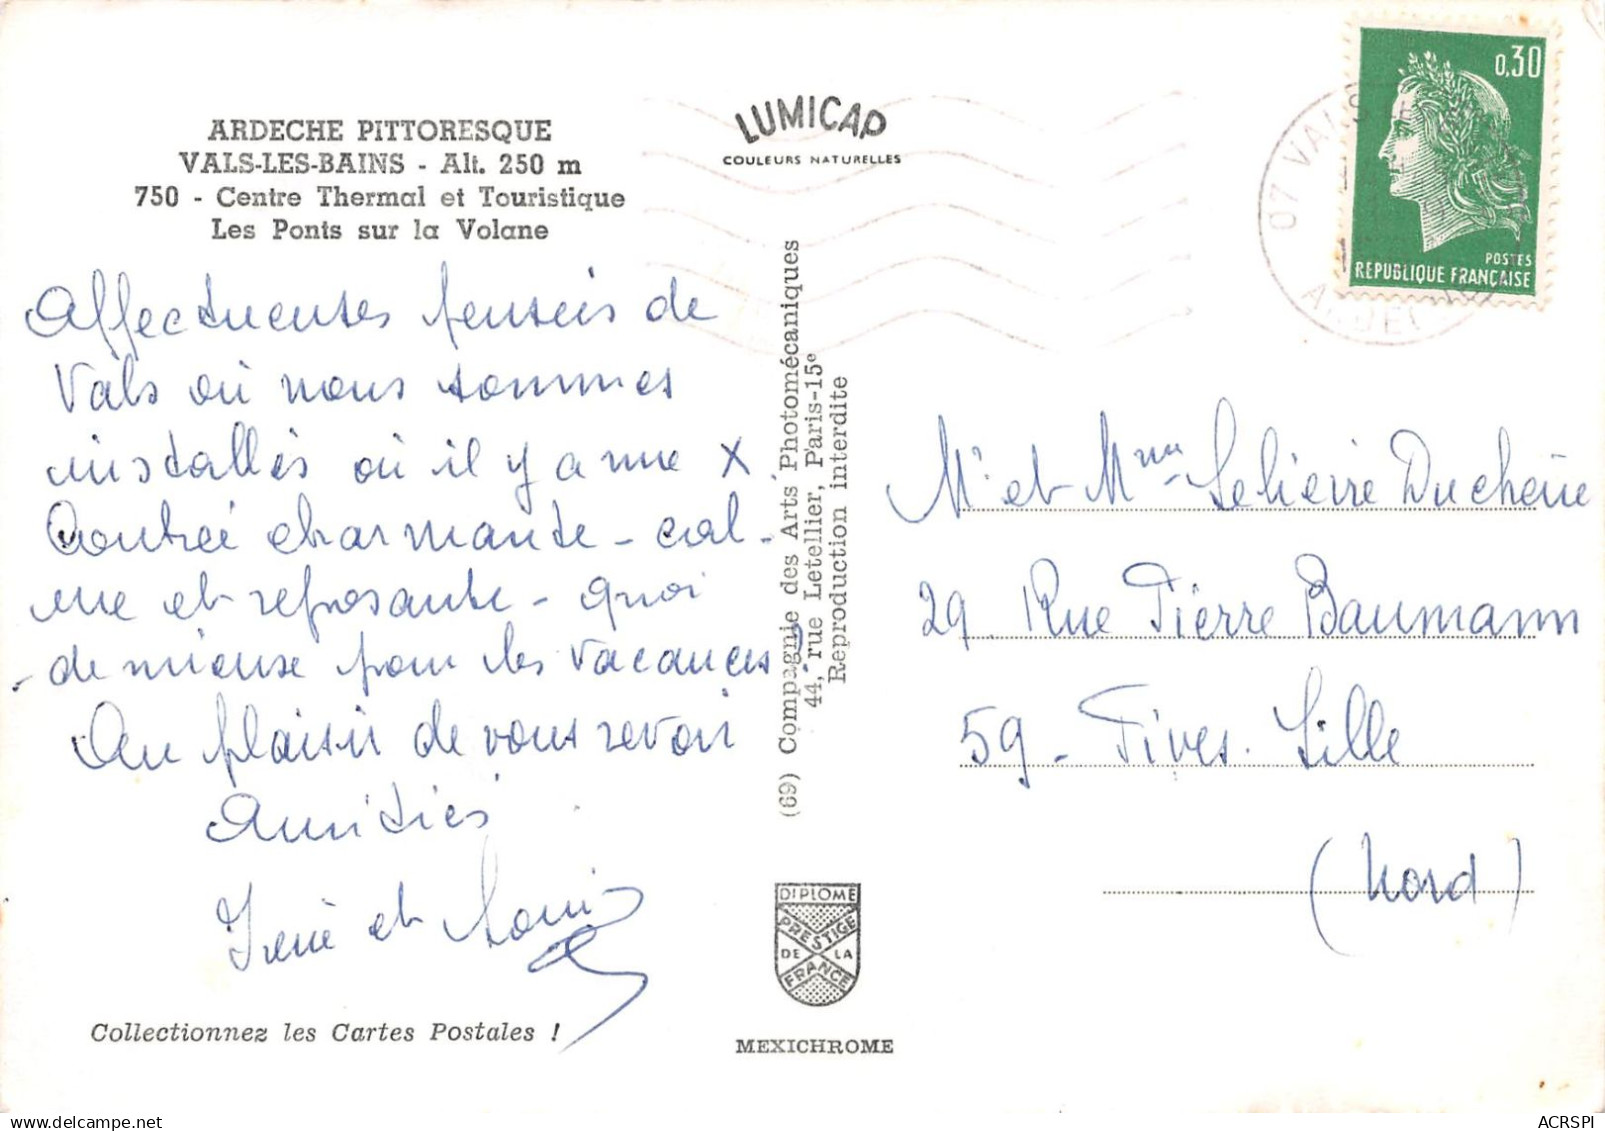 ARDECHE PITTORESQUE
VALS-LES-BAINS - Alt. 250 m
750 - Centre Thermal et Touristique
Les Ponts sur la Volane
Affectueuses pensées de
Vals où nous sommes
installés où il y a une X
Contrée charmante - cal-
me et reposante - quoi
- de mieux pour les vacances?
Au plaisir de vous revoir
Amitiés
Irène et Louis
Collectionnez les Cartes Postales !
LUMICAP
COULEURS NATURELLES
(69) Compagnie des Arts Photomécaniques
44, rue Letellier, Paris-15e
Reproduction interdite
DIPLOME
PRESTIGE
DE LA
FRANCE
MEXICHROME
0,30
POSTES
REPUBLIQUE FRANÇAISE
07 VALS
Mr et Mme Duchêne
29 Rue Pierre Baumann
59 - Fives. Lille
(Nord)
ACRSPI